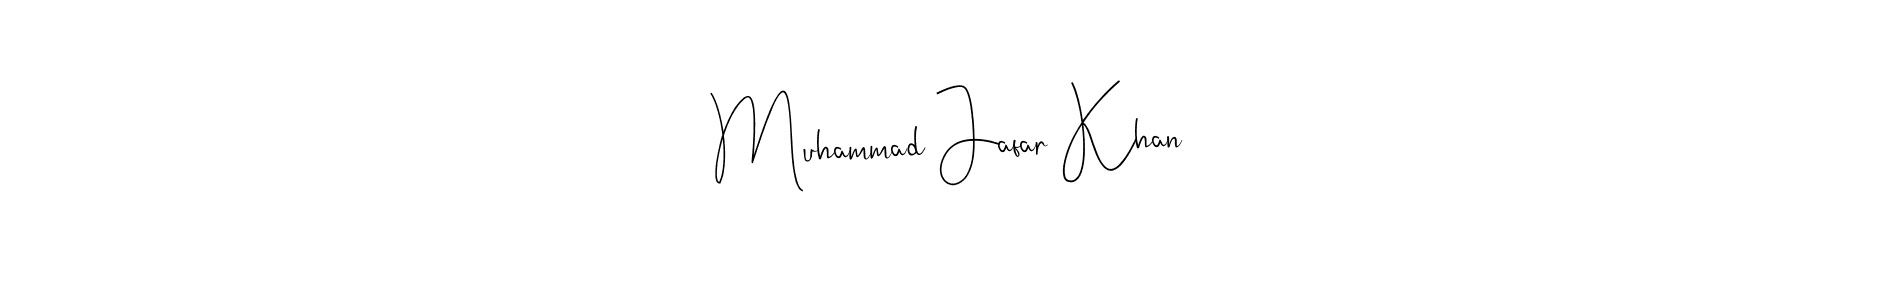 Muhammad Jafar Khan